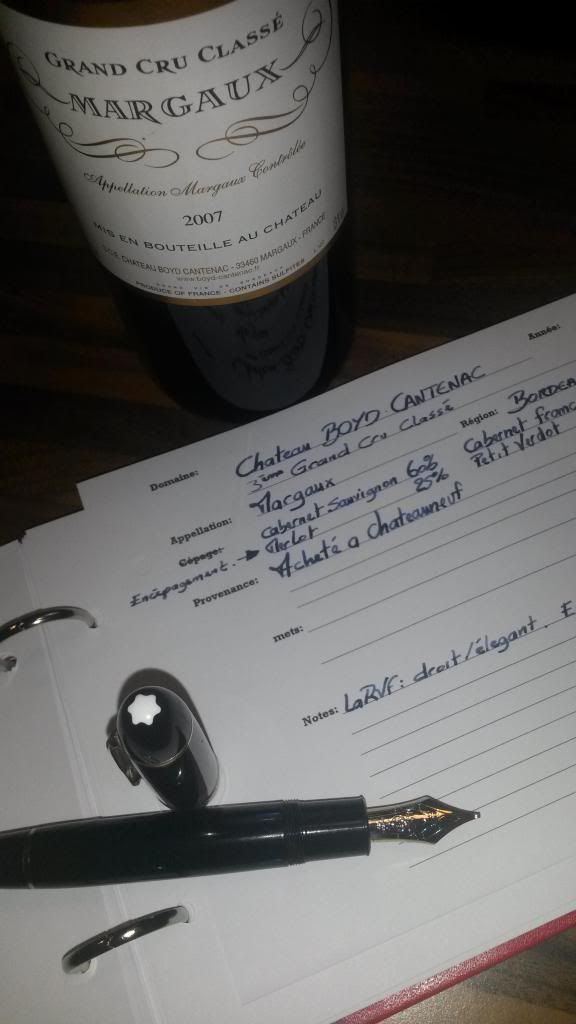 GRAND CRU CLASSÉ
MARGAUX
Appellation Margaux Contrôlée
2007
MIS EN BOUTEILLE AU CHATEAU
CHATEAU BOYD CANTENAC - 33460 MARGAUX - FRANCE
www.boyd-cantenac.fr
PRODUCE OF FRANCE - CONTAINS SULFITES
Année:
Domaine: Chateau BOYD CANTENAC
3ème Grand Cru Classé
Région: BORDEA
Appellation: Margaux
Cépage: Cabernet Sauvignon 60% Cabernet franc
Encépagement. → Merlot 25% Petit Verdot
Provenance: Acheté a Chateauneuf
mets:
Notes: La RVF: droit/élegant. E